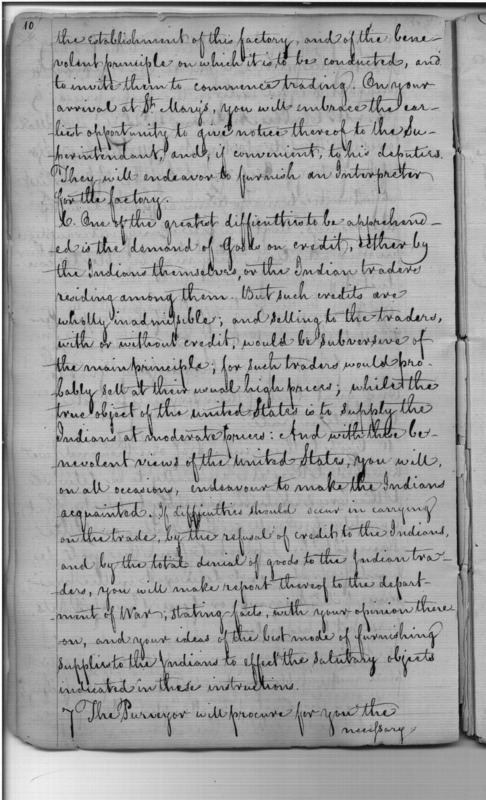 10
the establishment of this factory, and of the bene-
volent principle on which it is to be conducted, and
to invite them to commence trading. On your
arrival at St. Marys, you will embrace the ear-
liest opportunity to give notice thereof to the Su-
perintendant, and, if convenient, to his deputies.
They will endeavor to furnish an Interpreter
for the factory.
6. One of the greatest difficulties to be apprehend-
ed is the demand of Goods on credit, either by
the Indians themselves, or the Indian traders
residing among them. But such credits are
wholly inadmissible; and selling to the traders,
with or without credit, would be subversive of
the main principle; for such traders would pro-
bably sell at their usual high prices; whilst the
true object of the united States is to supply the
Indians at moderate prices: And with these be-
nevolent views of the United States, you will,
on all occasions, endeavour to make the Indians
acquainted. If difficulties should occur in carrying
on the trade, by the refusal of credit to the Indians,
and by the total denial of goods to the Indian tra-
ders, you will make report thereof to the depart-
ment of War, stating facts, with your opinion there
on, and your ideas of the best mode of furnishing
supplies to the Indians to effect the salutary objects
indicated in these instructions.
7 The Purveyor will procure for you the
necessary